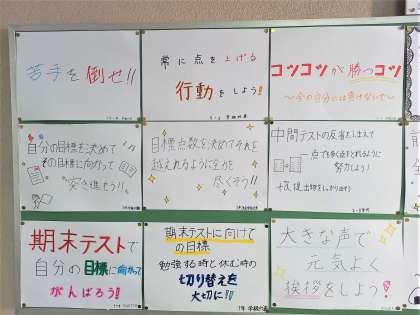 苦手を倒せ!!
常に点を上げる
行動をしよう!
コツコツが勝つコツ
～今の自分には負けないで～
自分の目標を決めて
その目標に向かって
突き進もう!!
目標点数を決めてそれを
越えれるように全力を
尽くそう!!
中間テストの反省をふまえて
一点でも多く点をとれるように
努力しよう!
+α 提出物をしっかり出そう
期末テストで
自分の目標に向かって
がんばろう!!
期末テストに向けて
の目標
勉強する時と休む時の
切り替えを
大切に!!
大きな声で
元気よく
挨拶をしよう!